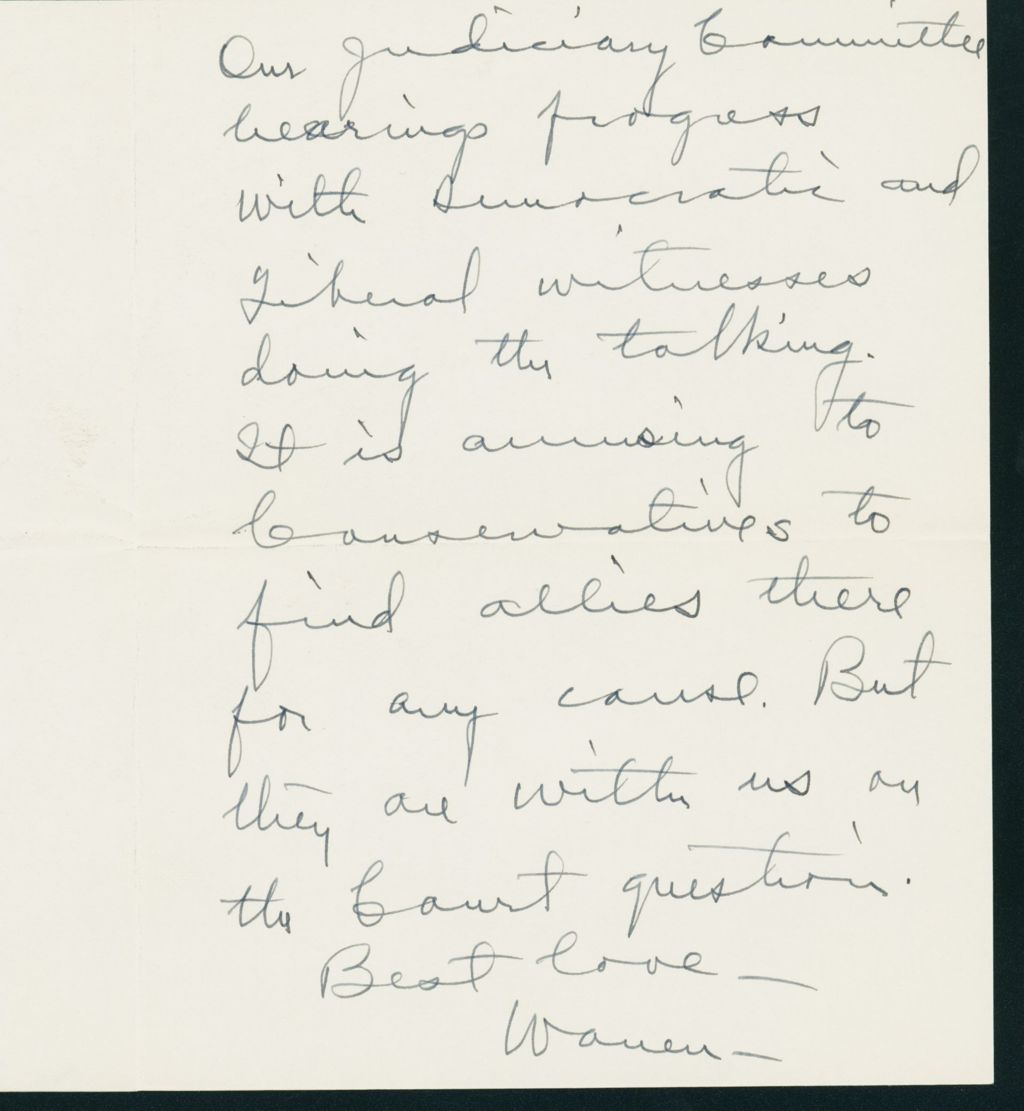 Our Judiciary Committee
hearings progress
with Democratic and
Liberal witnesses
doing the talking.
It is amusing to
Conservatives to
find allies there
for any cause. But
they are with us on
the Court question.
Best love —
Warren —